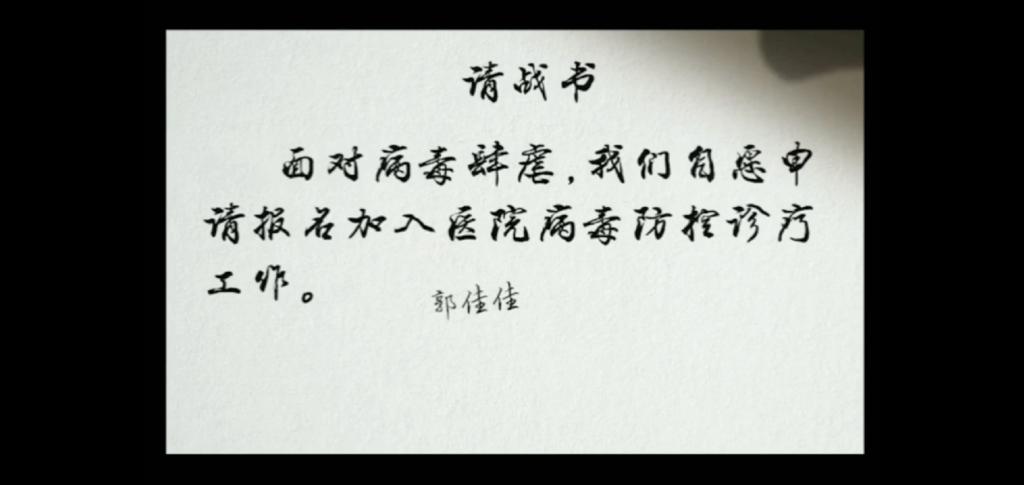 请战书
面对病毒肆虐,我们自愿申
请报名加入医院病毒防控诊疗
工作。
郭佳佳